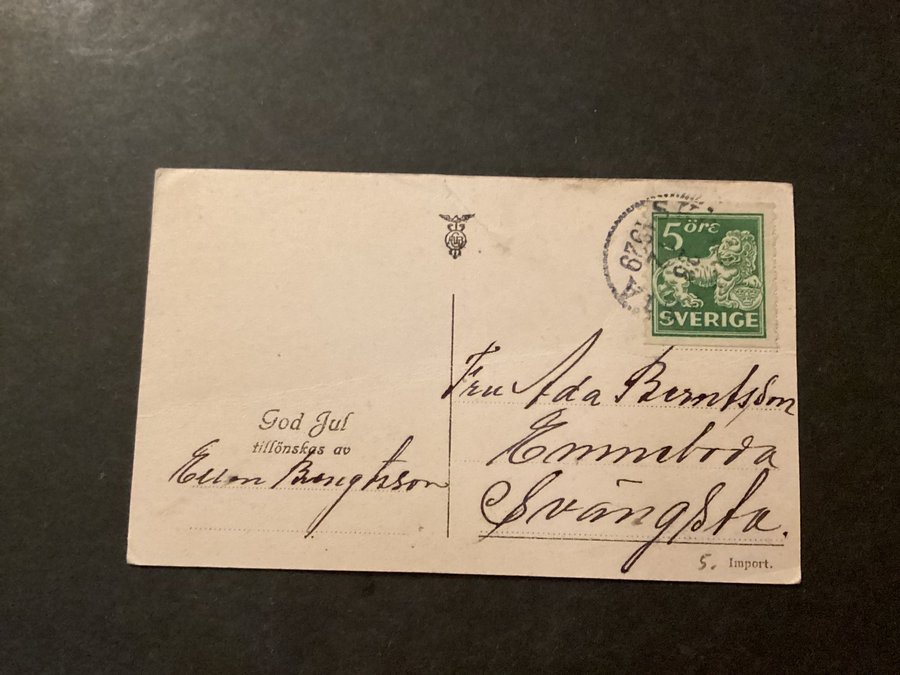 5 öre
SVERIGE
1929
Fru Ada Berntsson
Emneboda
Svängsta.
God Jul
tillönskas av
Ellen Bengtsson
5. Import.